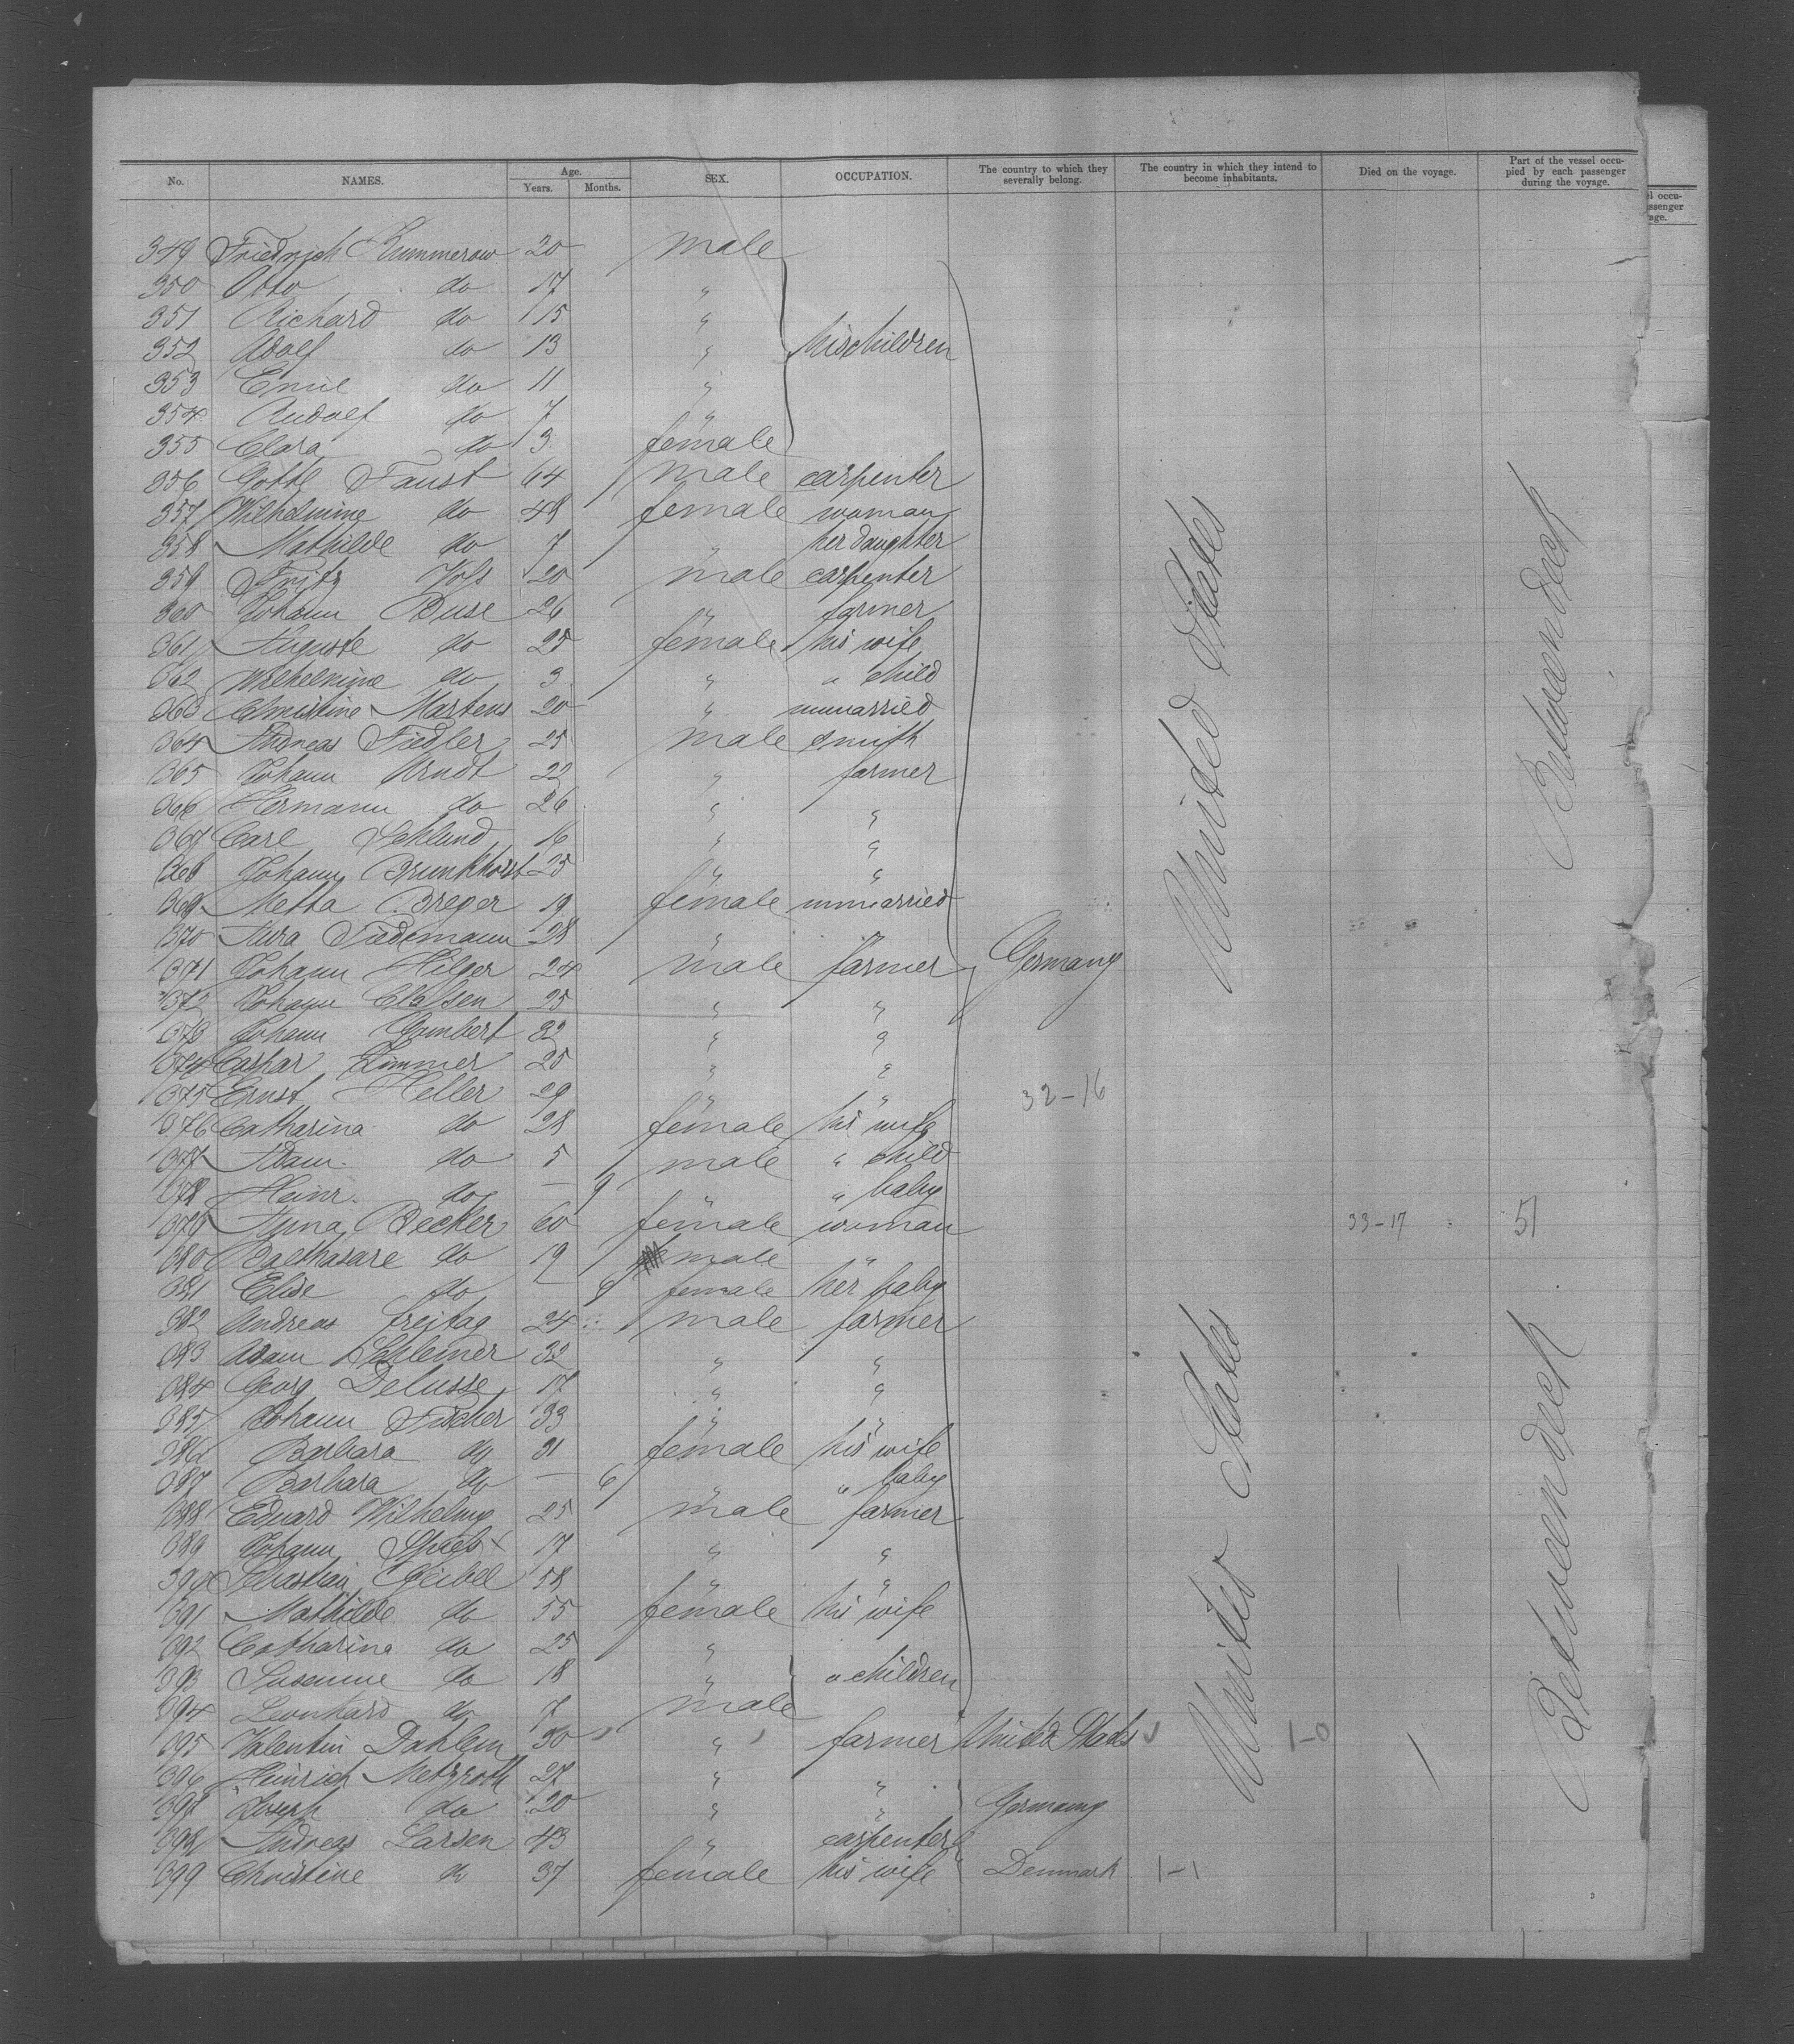 No. NAMES. Age. Years. Months. SEX. OCCUPATION. The country to which they severally belong. The country in which they intend to become inhabitants. Died on the voyage. Part of the vessel occupied by each passenger during the voyage.
349 Friedrich Kummerow 20 male
350 Otto do 17 "
351 Richard do 15 "
352 Adolf do 13 " his children
353 Emil do 11 "
354 Rudolf do 7 "
355 Clara do 3 female
356 Gottl Faust 64 male carpenter
357 Wilhelmine do 48 female woman
358 Mathilde do 7 " her daughter
359 Fritz Voss 20 male carpenter
360 Johann Buse 26 " farmer
361 Auguste do 25 female his wife
362 Wilhelmine do 3 " " child
363 Christine Martens 20 " unmarried
364 Andreas Fiedler 25 male smith
365 Johann Arndt 22 " farmer
366 Hermann do 26 " "
367 Carl Schlund 16 " "
368 Johann Brunkhorst 25 " "
369 Metta Breyer 19 female unmarried
370 Tiedemann 28 " "
371 Johann Hilger 24 male farmer Germany United States Betweendeck
372 Johann Clasen 25 " "
373 Johann Gumbert 32 " "
374 Caspar Zimmer 25 " "
375 Ernst Heller 29 " " 32-16
376 Catharina do 28 female his wife
377 Adam do 5 male " child
378 Heinr. do — 9 " " baby
379 Anna Becker 60 female woman 33-17 51
380 Balthasare do 19 male "
381 Elise do — 9 female her baby
382 Andreas Freitag 24 male farmer
383 Adam Schleiner 32 " "
384 Georg Delusse 17 " "
385 Johann Fischer 33 " "
386 Barbara do 31 female his wife
387 Barbara do — 6 " " baby
388 Eduard Wilhelmy 25 male farmer
389 Johann 17 " "
390 Sebastian Geibel 58 " "
391 Mathilde do 55 female his wife
392 Catharina do 25 "
393 Susanne do 18 " " children
394 Leonhard do 7 male
395 Valentin Dahlem 30 " farmer United States 1-0 United States Betweendeck
396 Heinrich Metzroth 27 " "
397 Joseph do 20 " " Germany
398 Andreas Larsen 43 " carpenter
399 Christine do 37 female his wife Denmark 1-1